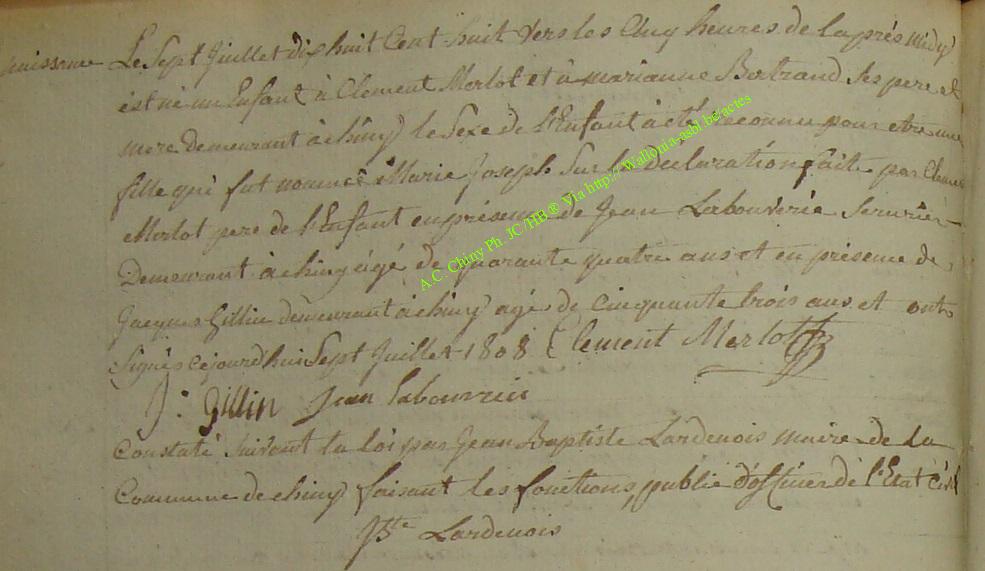 naissance
Le Sept Juillet dix huit Cent huit vers les Cinq heures de laprés midy
est né un Enfant à Clement Merlot et à marianne Bertrand ses pere et
mere demeurant à chiny le Sexe de l'Enfant à été reconnu pour etre une
fille qui fut nommée Marie Joseph Sur la déclaration faite par Clement
Merlot pere de l'Enfant en présence de Jean Labouverie Serurier
Demeurant à chiny agé de quarante quatre ans et en présence de
Jacques Gillin demeurant à chiny agé de cinquante trois ans et ont
Signés cejourd'huy Sept Juillet 1808 Clement Merlot
J: Gillin Jean Labouverie
Constaté Suivant la loi par Jean Baptiste Lardenois maire de la
Commune de chiny faisant les fonctions public d'officier de l'Etat Civil
JBte Lardenois
A.C. Chiny Ph. JC/HB ® Via http://Wallonia-asbl.be/actes